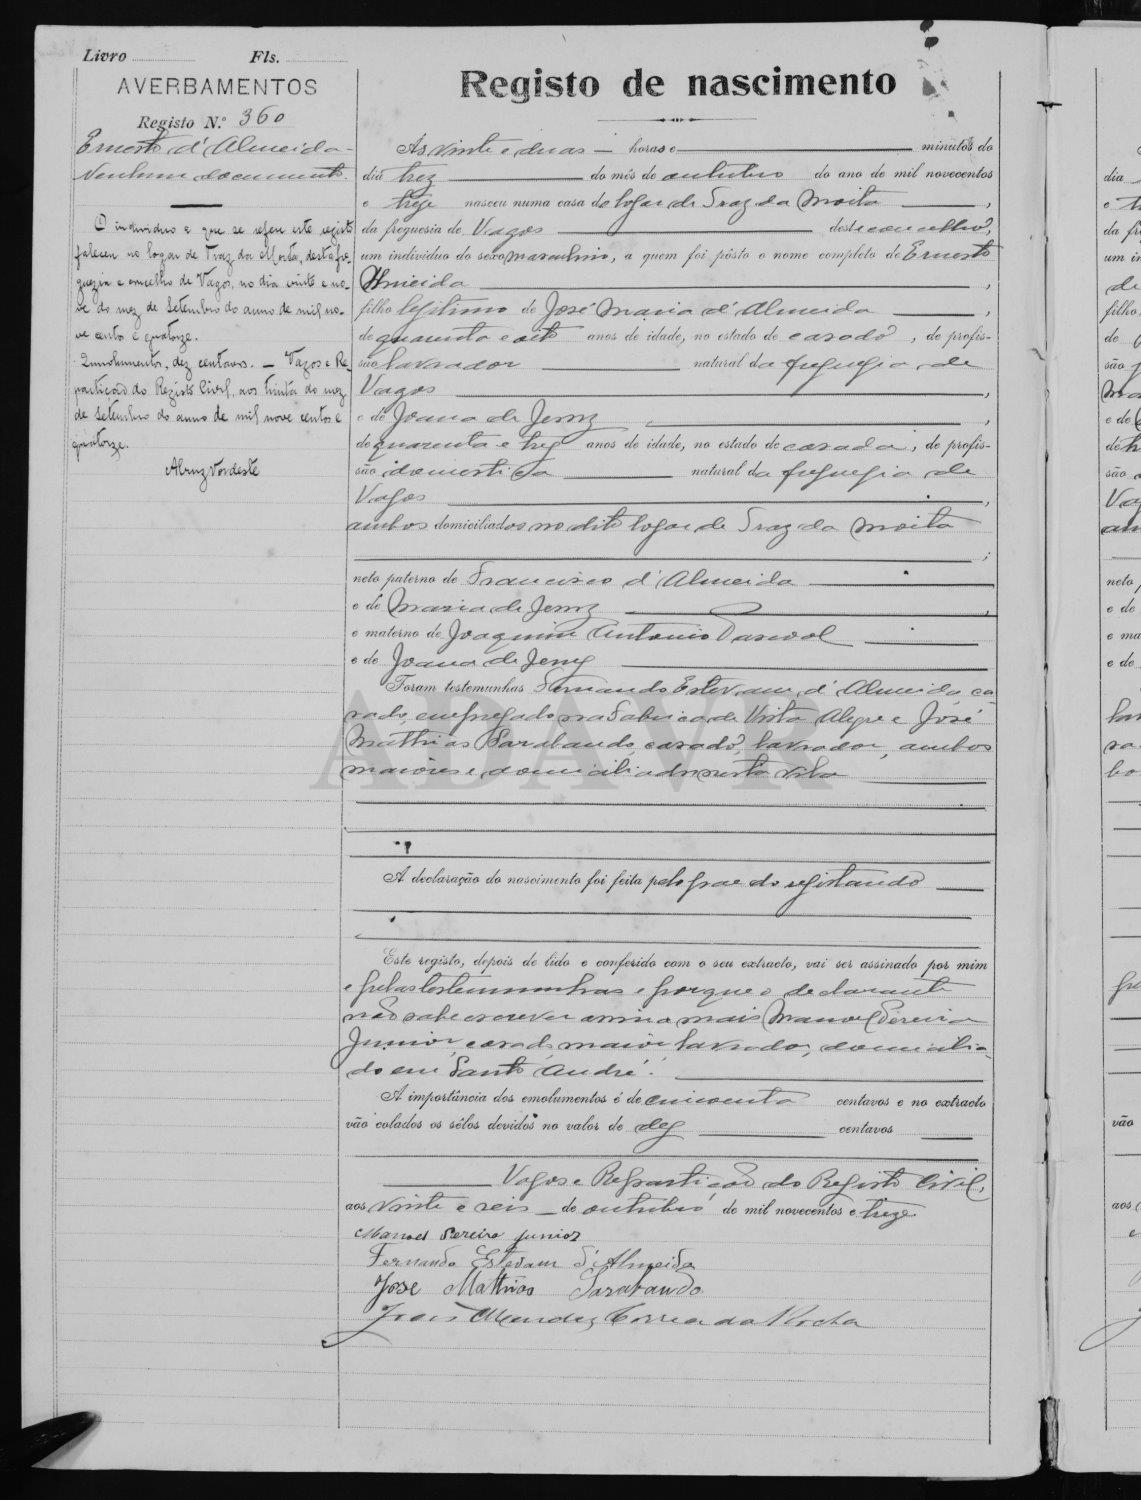 Livro Fls.
AVERBAMENTOS
Registo N.º 360
Ernesto d'Almeida
Nenhum documento.
O individuo a que se refere este registo
faleceu no logar de Traz da Moita, desta fre-
guezia e concelho de Vagos, no dia vinte e no-
ve do mez de Setembro do anno de mil no-
ve cento e quatorze.
Emolumentos, dez centavos. — Vagos e Re-
partição do Registo Civil, aos trinta do mez
de Setembro do anno de mil nove centos e
quatorze.
Registo de nascimento
Ás vinte e duas — horas e minutos do
dia trez do mês de outubro do ano de mil novecentos
e treze nasceu numa casa do logar de Traz da Moita,
da freguesia de Vagos deste concelho,
um individuo do sexo masculino, a quem foi pôsto o nome completo de Ernesto
Almeida,
filho legitimo de José Maria d'Almeida,
de quarenta e oito anos de idade, no estado de casado, de profis-
são lavrador natural da freguezia de
Vagos,
e de Joana de Jesus,
de quarenta e trez anos de idade, no estado de casada, de profis-
são domestica natural da freguezia de
Vagos,
ambos domiciliados no dito logar de Traz da Moita
;
neto paterno de Francisco d'Almeida
e de Maria de Jesus,
e materno de Joaquim Antonio Pascoal
e de Joana de Jesus
Foram testemunhas Fernando Estevam d'Almeida, ca-
sado, empregado na Fabrica da Vista Alegre e José
Mathias Sarabando, casado, lavrador, ambos
maiores e domiciliados nesta vila
A declaração do nascimento foi feita pelo pae do registando
Este registo, depois de lido e conferido com o seu extracto, vai ser assinado por mim
e pelas testemunhas e porque o declarante
não sabe escrever assina mais Manoel Pereira
Junior, casado, maior, lavrador, domicilia-
do em Santo André.
A importância dos emolumentos é de cincoenta centavos e no extracto
vão colados os sêlos devidos no valor de dez centavos
Vagos e Repartição do Registo Civil,
aos vinte e seis de outubro de mil novecentos e treze
Manoel Pereira Junior
Fernando Estevam d'Almeida
José Mathias Sarabando
Mendes Correa da Rocha
ADAVR
dia